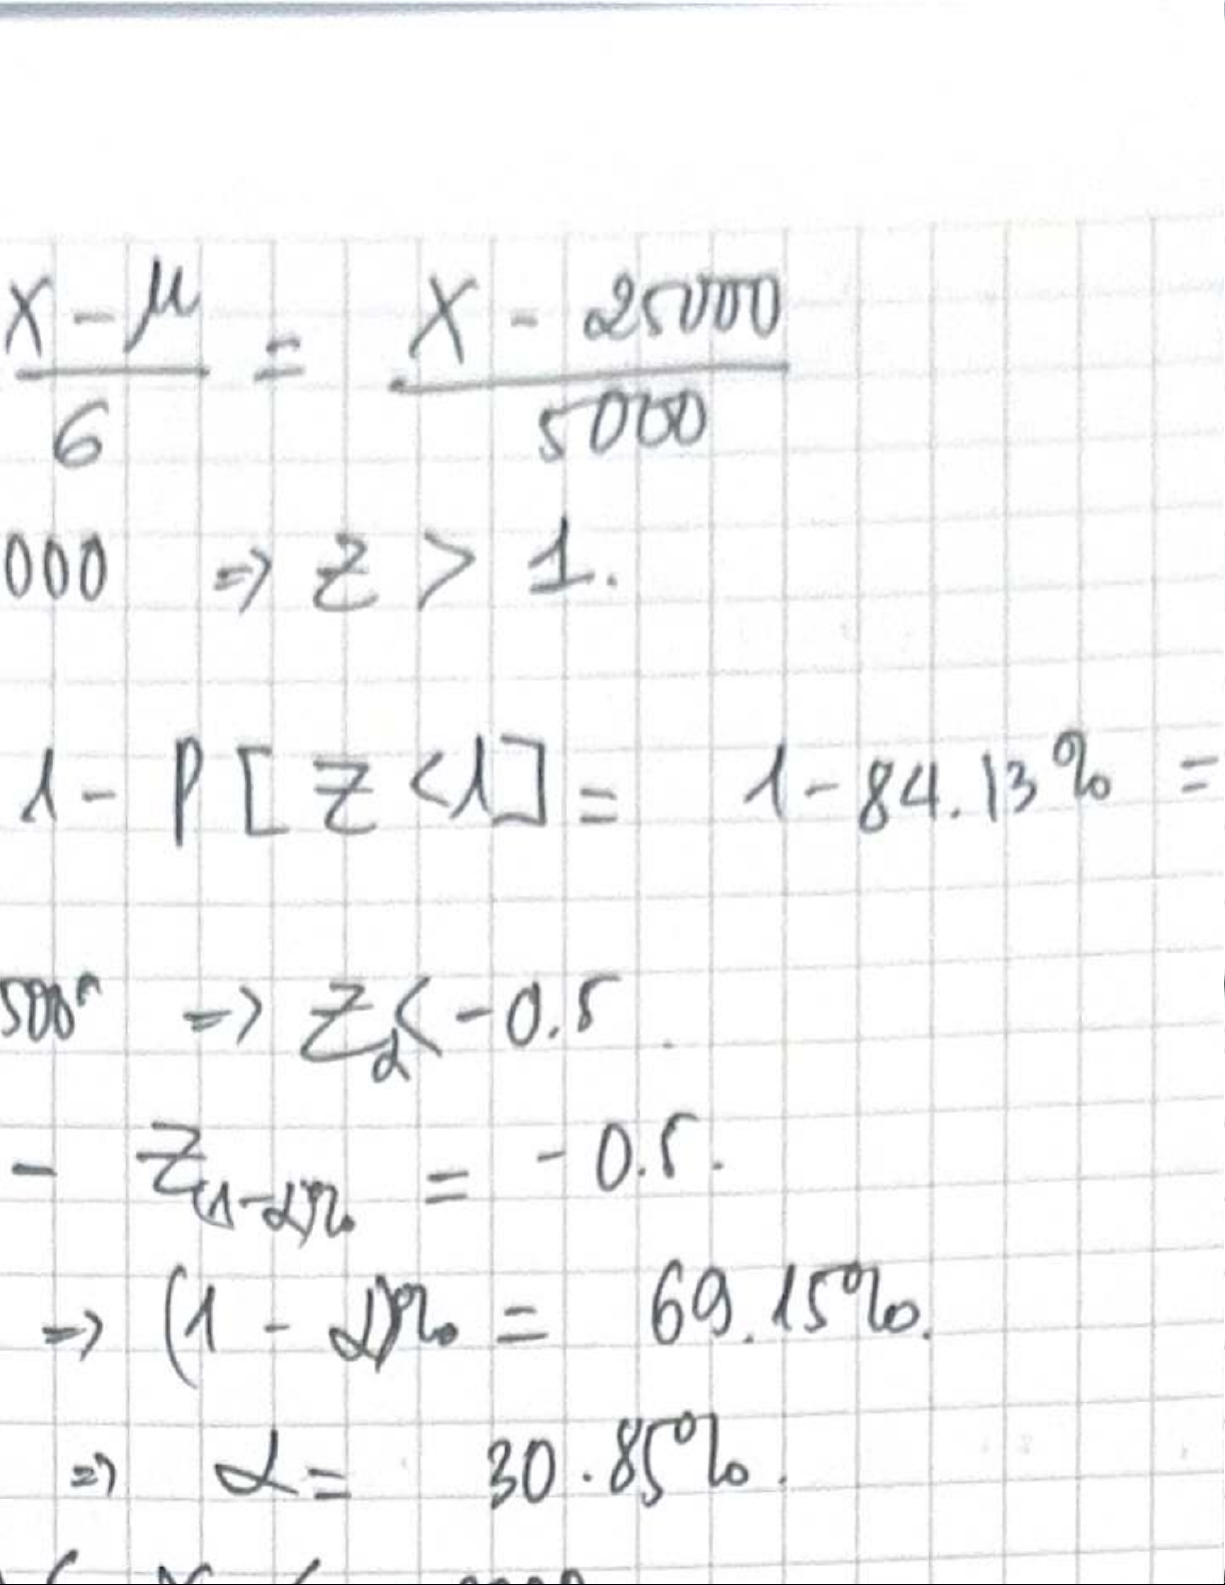 X - μ / σ = X - 25000 / 5000
000 => Z > 1.
1 - P [ Z < 1 ] = 1 - 84.13% =
500 => Zα < -0.5
- Z(1-α)% = -0.5.
=> (1 - α)% = 69.15%.
=> α = 30.85%.